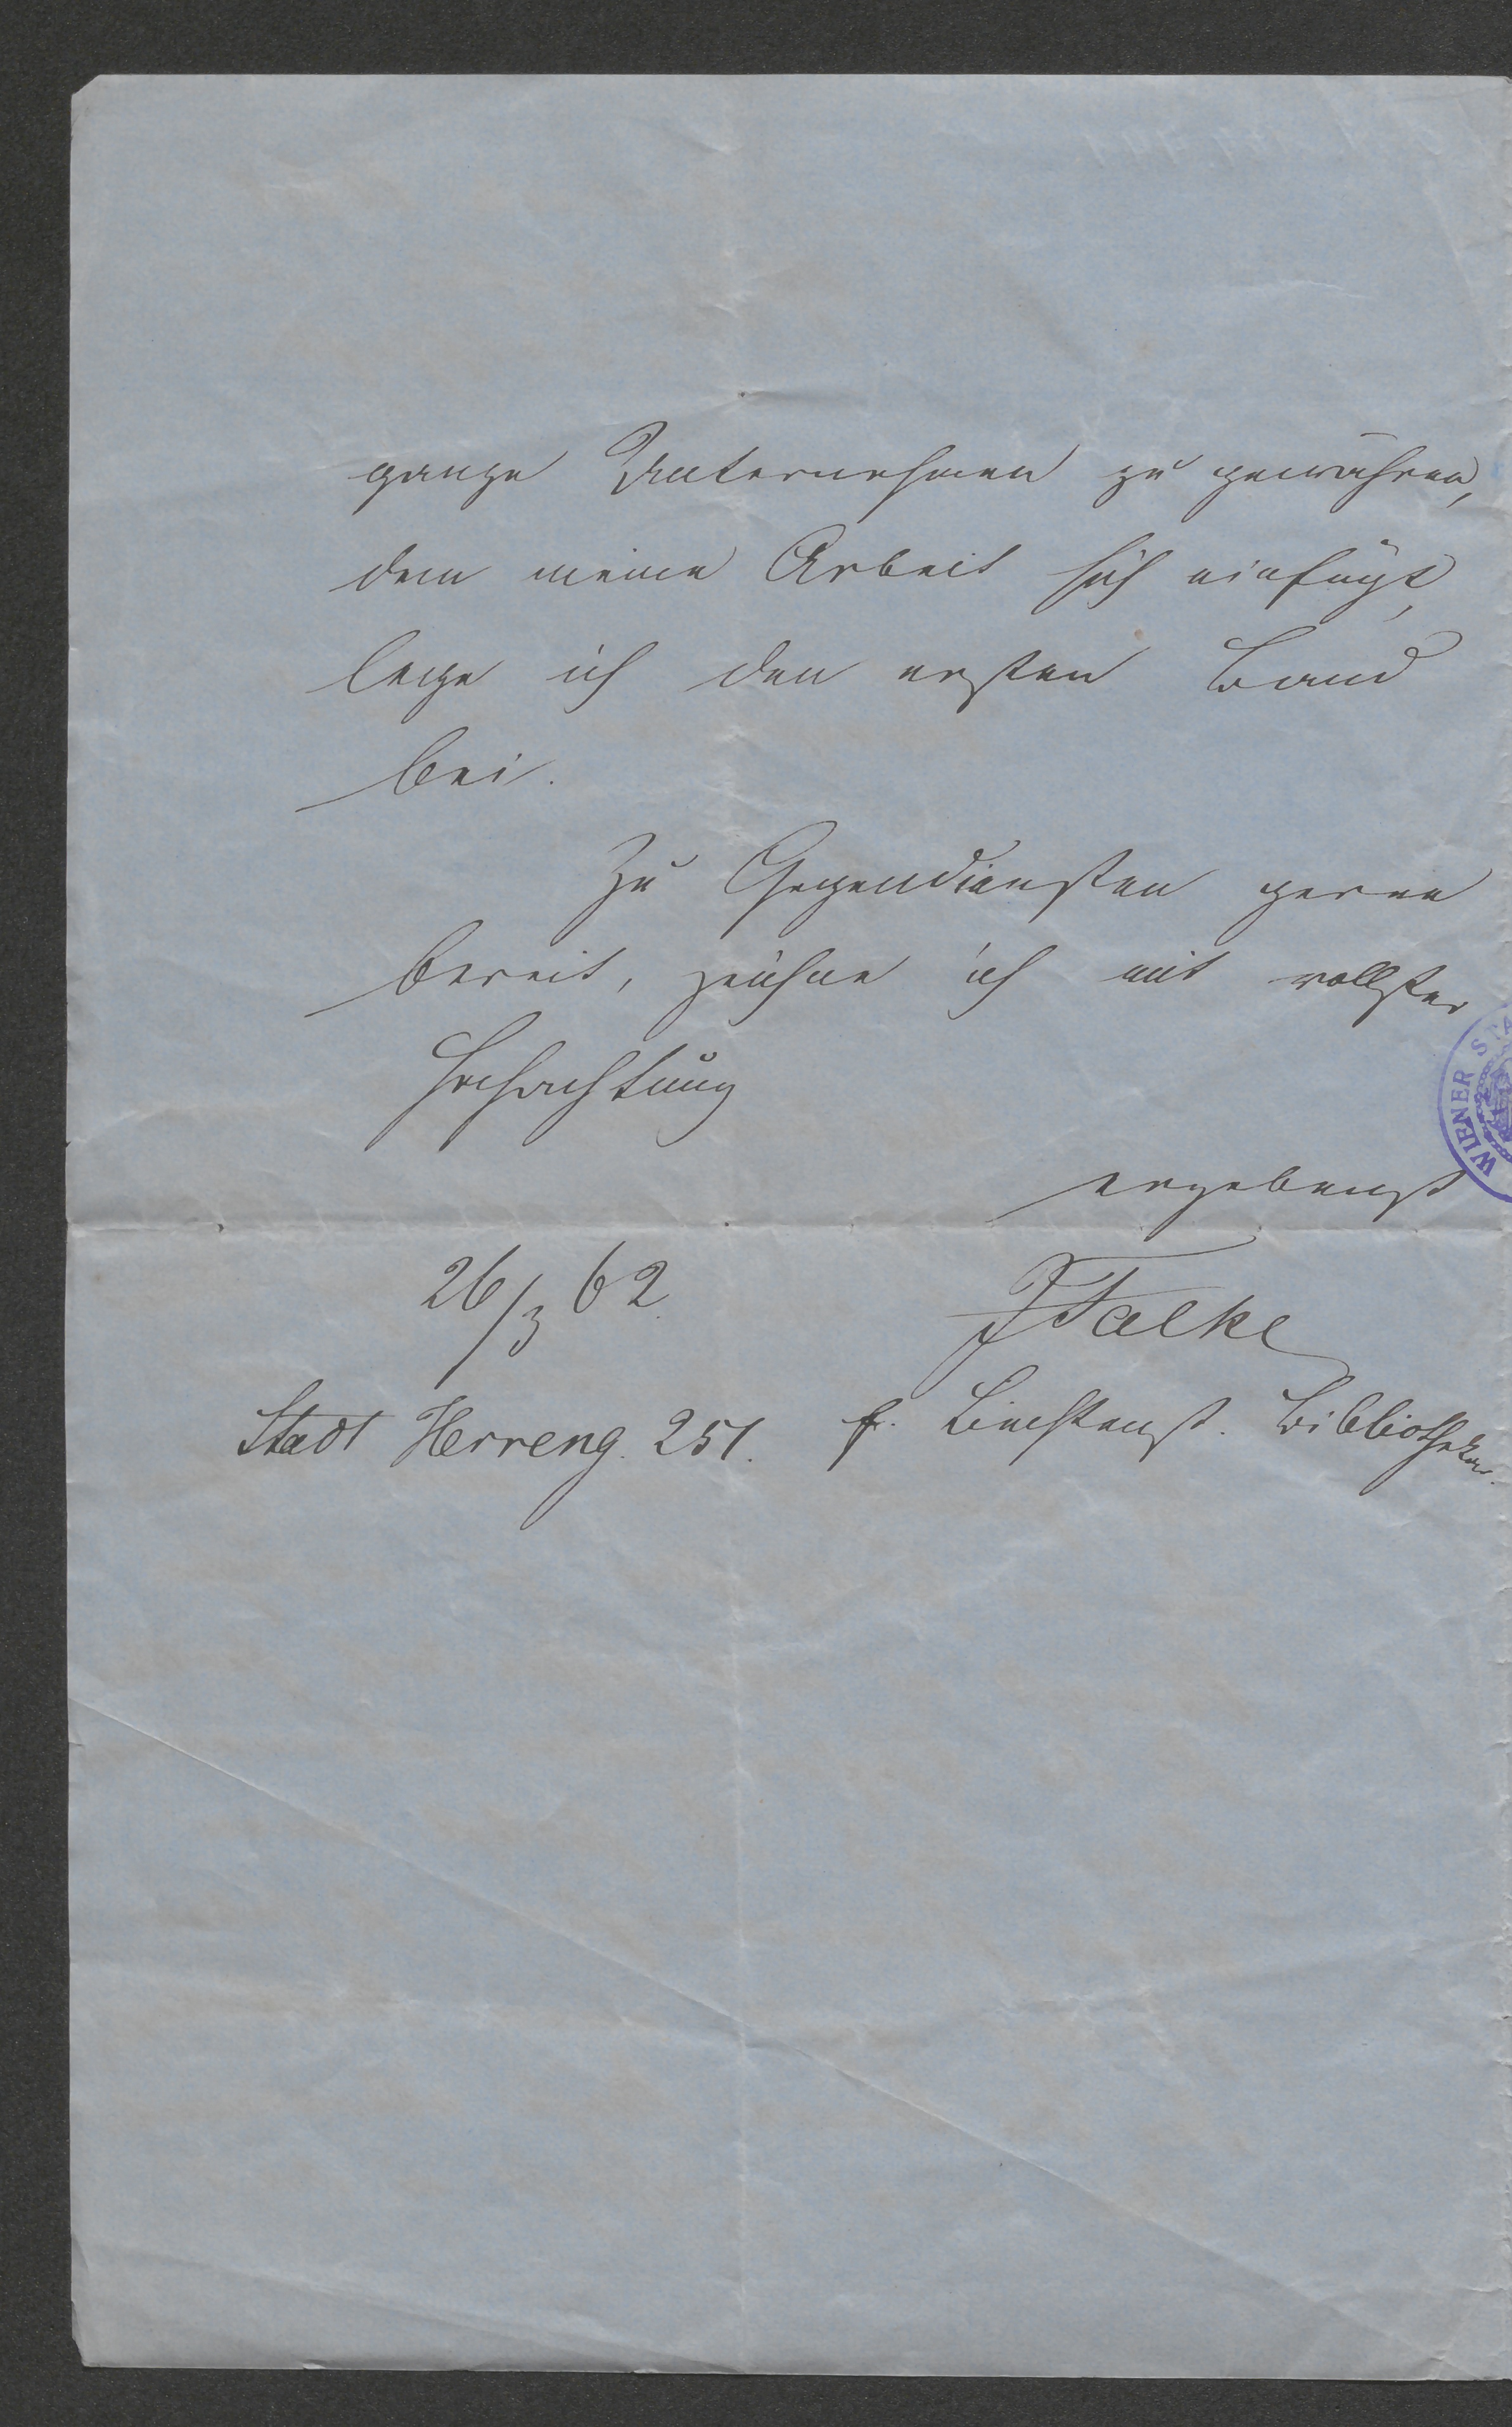 ganze Unternehmen zu gewähren,
dem meine Arbeit sich einfügt,
lege ich den ersten Band
bei.
Zu Gegendiensten gerne
bereit, zeichne ich mit vollster
Hochachtung
ergebenst
26/3 62.
JFalke
Stadt Herreng. 251.
f. Liechtenst. Bibliothekar.
WIENER